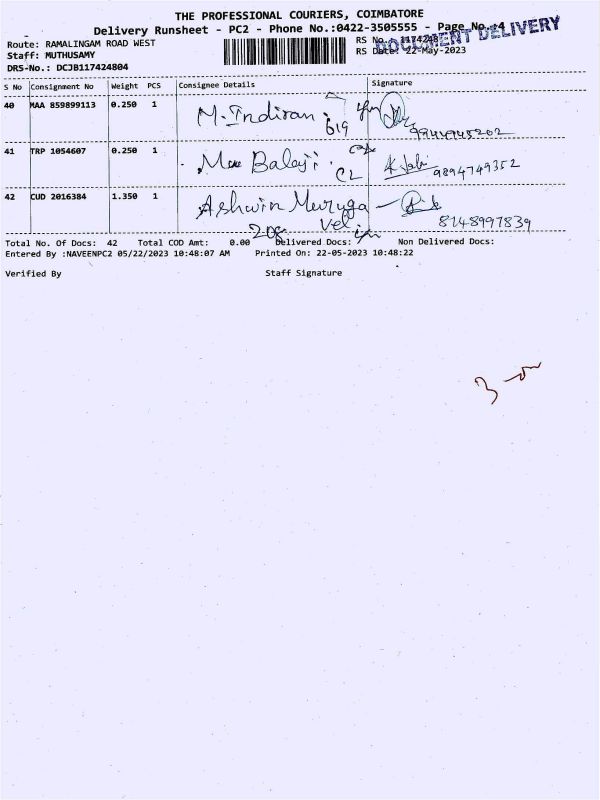 THE PROFESSIONAL COURIERS, COIMBATORE
Delivery Runsheet - PC2 - Phone No.:0422-3505555 - Page No.:4
DOCUMENT DELIVERY
Route: RAMALINGAM ROAD WEST RS No.:
Staff: MUTHUSAMY RS Date: 22-May-2023
DRS-No.: DCJB117424804
S No Consignment No Weight PCS Consignee Details Signature
40 MAA 859899113 0.250 1 M. Indiran 619
41 TRP 1054607 0.250 1 Balaji CL 9894749352
42 CUD 2016384 1.350 1 Ashwin Muruga Vel 8148997839
Total No. Of Docs: 42 Total COD Amt: 0.00 Delivered Docs: Non Delivered Docs:
Entered By :NAVEENPC2 05/22/2023 10:48:07 AM Printed On: 22-05-2023 10:48:22
Verified By Staff Signature